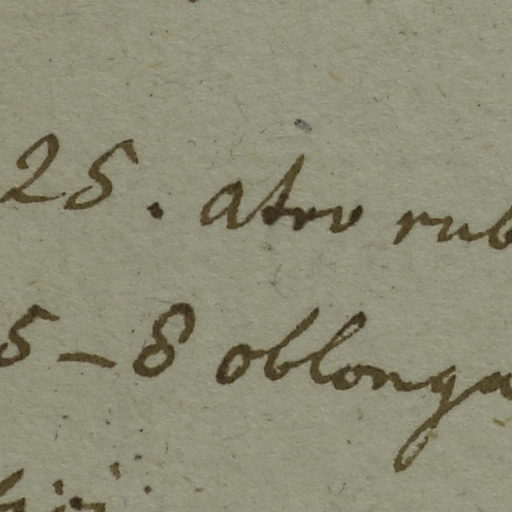 25. atro rub
5-8 oblonga